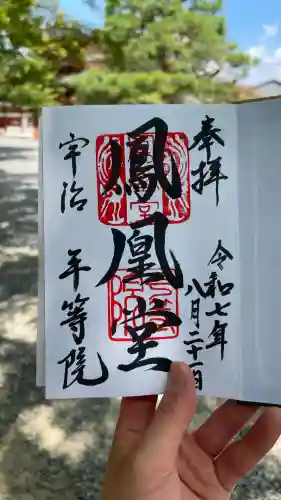 奉拝
令和七年
八月二十一日
鳳凰堂
宇治
平等院